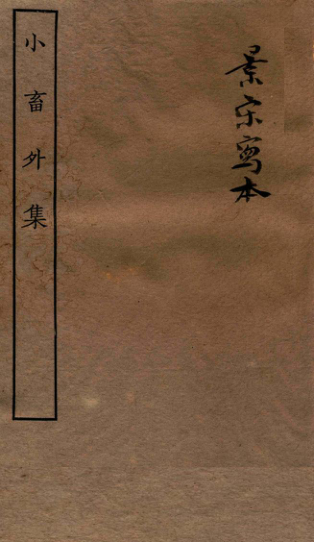 景宋寫本
小畜外集